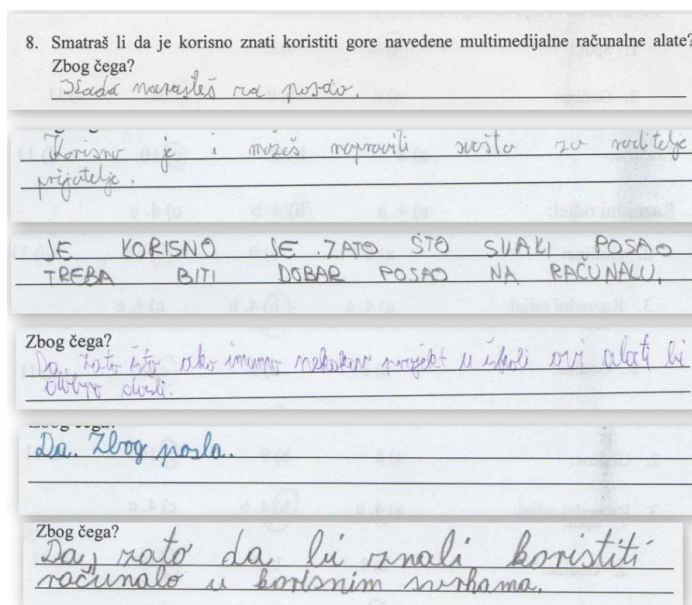 8. Smatraš li da je korisno znati koristiti gore navedene multimedijalne računalne alate?
Zbog čega?
Kada narasteš za posao.
Korisno je i možeš napraviti svašta za roditelje
prijatelje.
JE KORISNO JE ZATO ŠTO SVAKI POSAO
TREBA BITI DOBAR POSAO NA RAČUNALU.
Zbog čega?
Da, zato što ako imamo nekakav projekt u školi ovi alati bi
dobro došli.
Da. Zbog posla.
Zbog čega?
Da, zato da bi znali koristiti
računalo u korisnim svrhama.